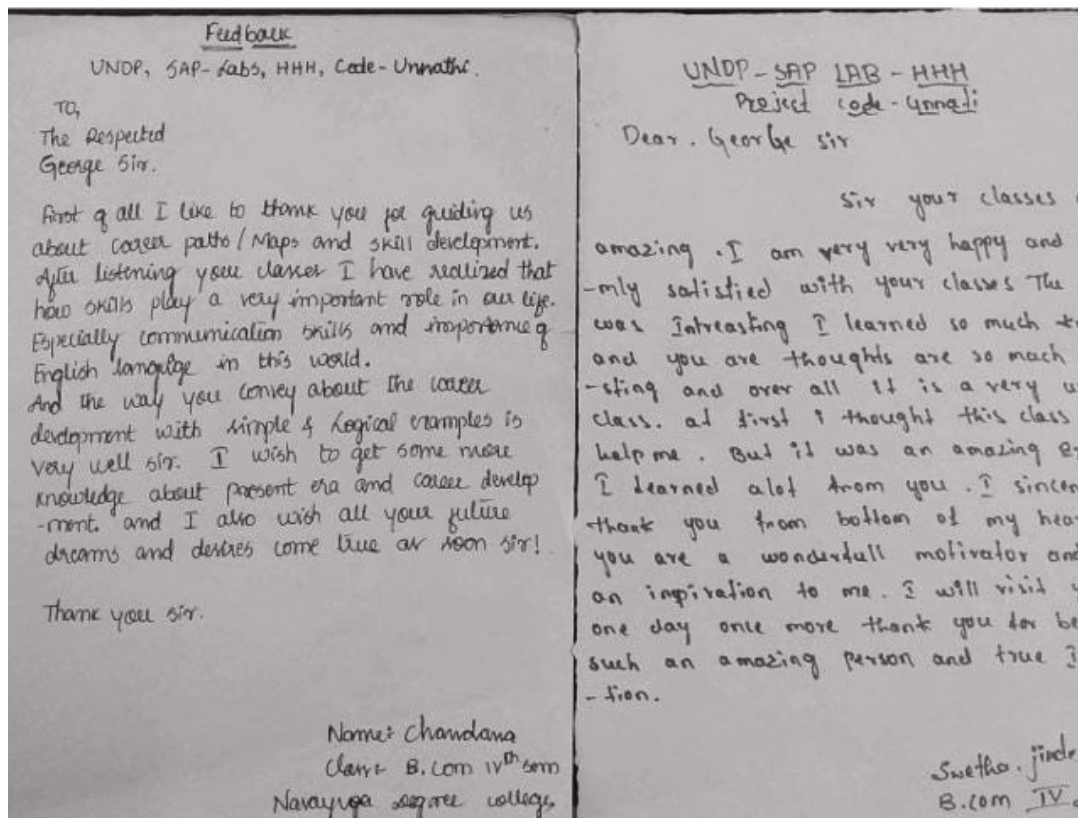 Feedback
UNDP, SAP-Labs, HHH, Code-Unnathi.
TO,
The Respected
George Sir.
First of all I like to thank you for guiding us
about career paths/Maps and skill development.
After listening your classes I have realized that
how skills play a very important role in our life.
Especially communication skills and importance of
English language in this world.
And the way you convey about the career
development with simple & Logical examples is
very well sir. I wish to get some more
knowledge about present era and career develop
-ment. and I also wish all your future
dreams and desires come true as soon sir!
Thank you sir.
Name: Chandana
Class: B.Com IVth sem
Navayuga Degree college,
UNDP-SAP LAB-HHH
Project code-Unnati
Dear. George sir
Sir your classes
amazing. I am very very happy and
-mly satisfied with your classes The
was Intreasting I learned so much
and you are thoughts are so mach
-sting and over all it is a very
class. at first i thought this class
help me. But it was an amazing
I learned alot from you. I sincer
thank you from bottom of my hear
you are a wonderfull motivator and
an inpiration to me. I will visit
one day once more thank you for be
such an amazing person and true I
-tion.
Swetha. jinde
B.com IV